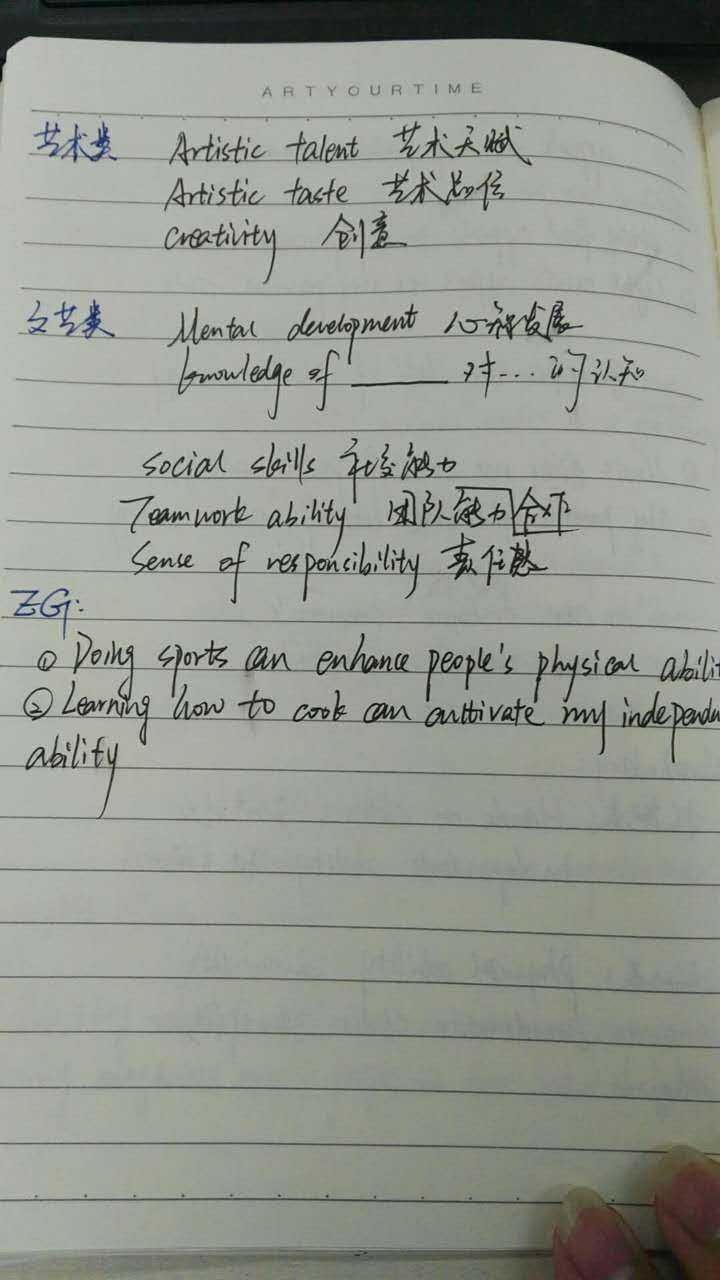 ARTYOURTIME
艺术类 Artistic talent 艺术天赋
Artistic taste 艺术品位
Creativity 创意
文艺类 Mental development 心神发展
knowledge of ______ 对... 的认知
social skills 社交能力
Teamwork ability 团队能力合作
Sense of responsibility 责任感
EG:
① Doing sports can enhance people's physical abilit
② Learning how to cook can cultivate my independ
ability